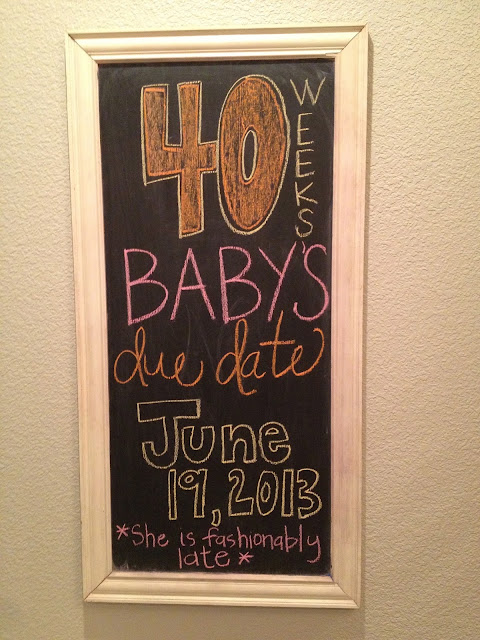 40 WEEKS
BABY'S
due date
June
19, 2013
*She is fashionably
late *